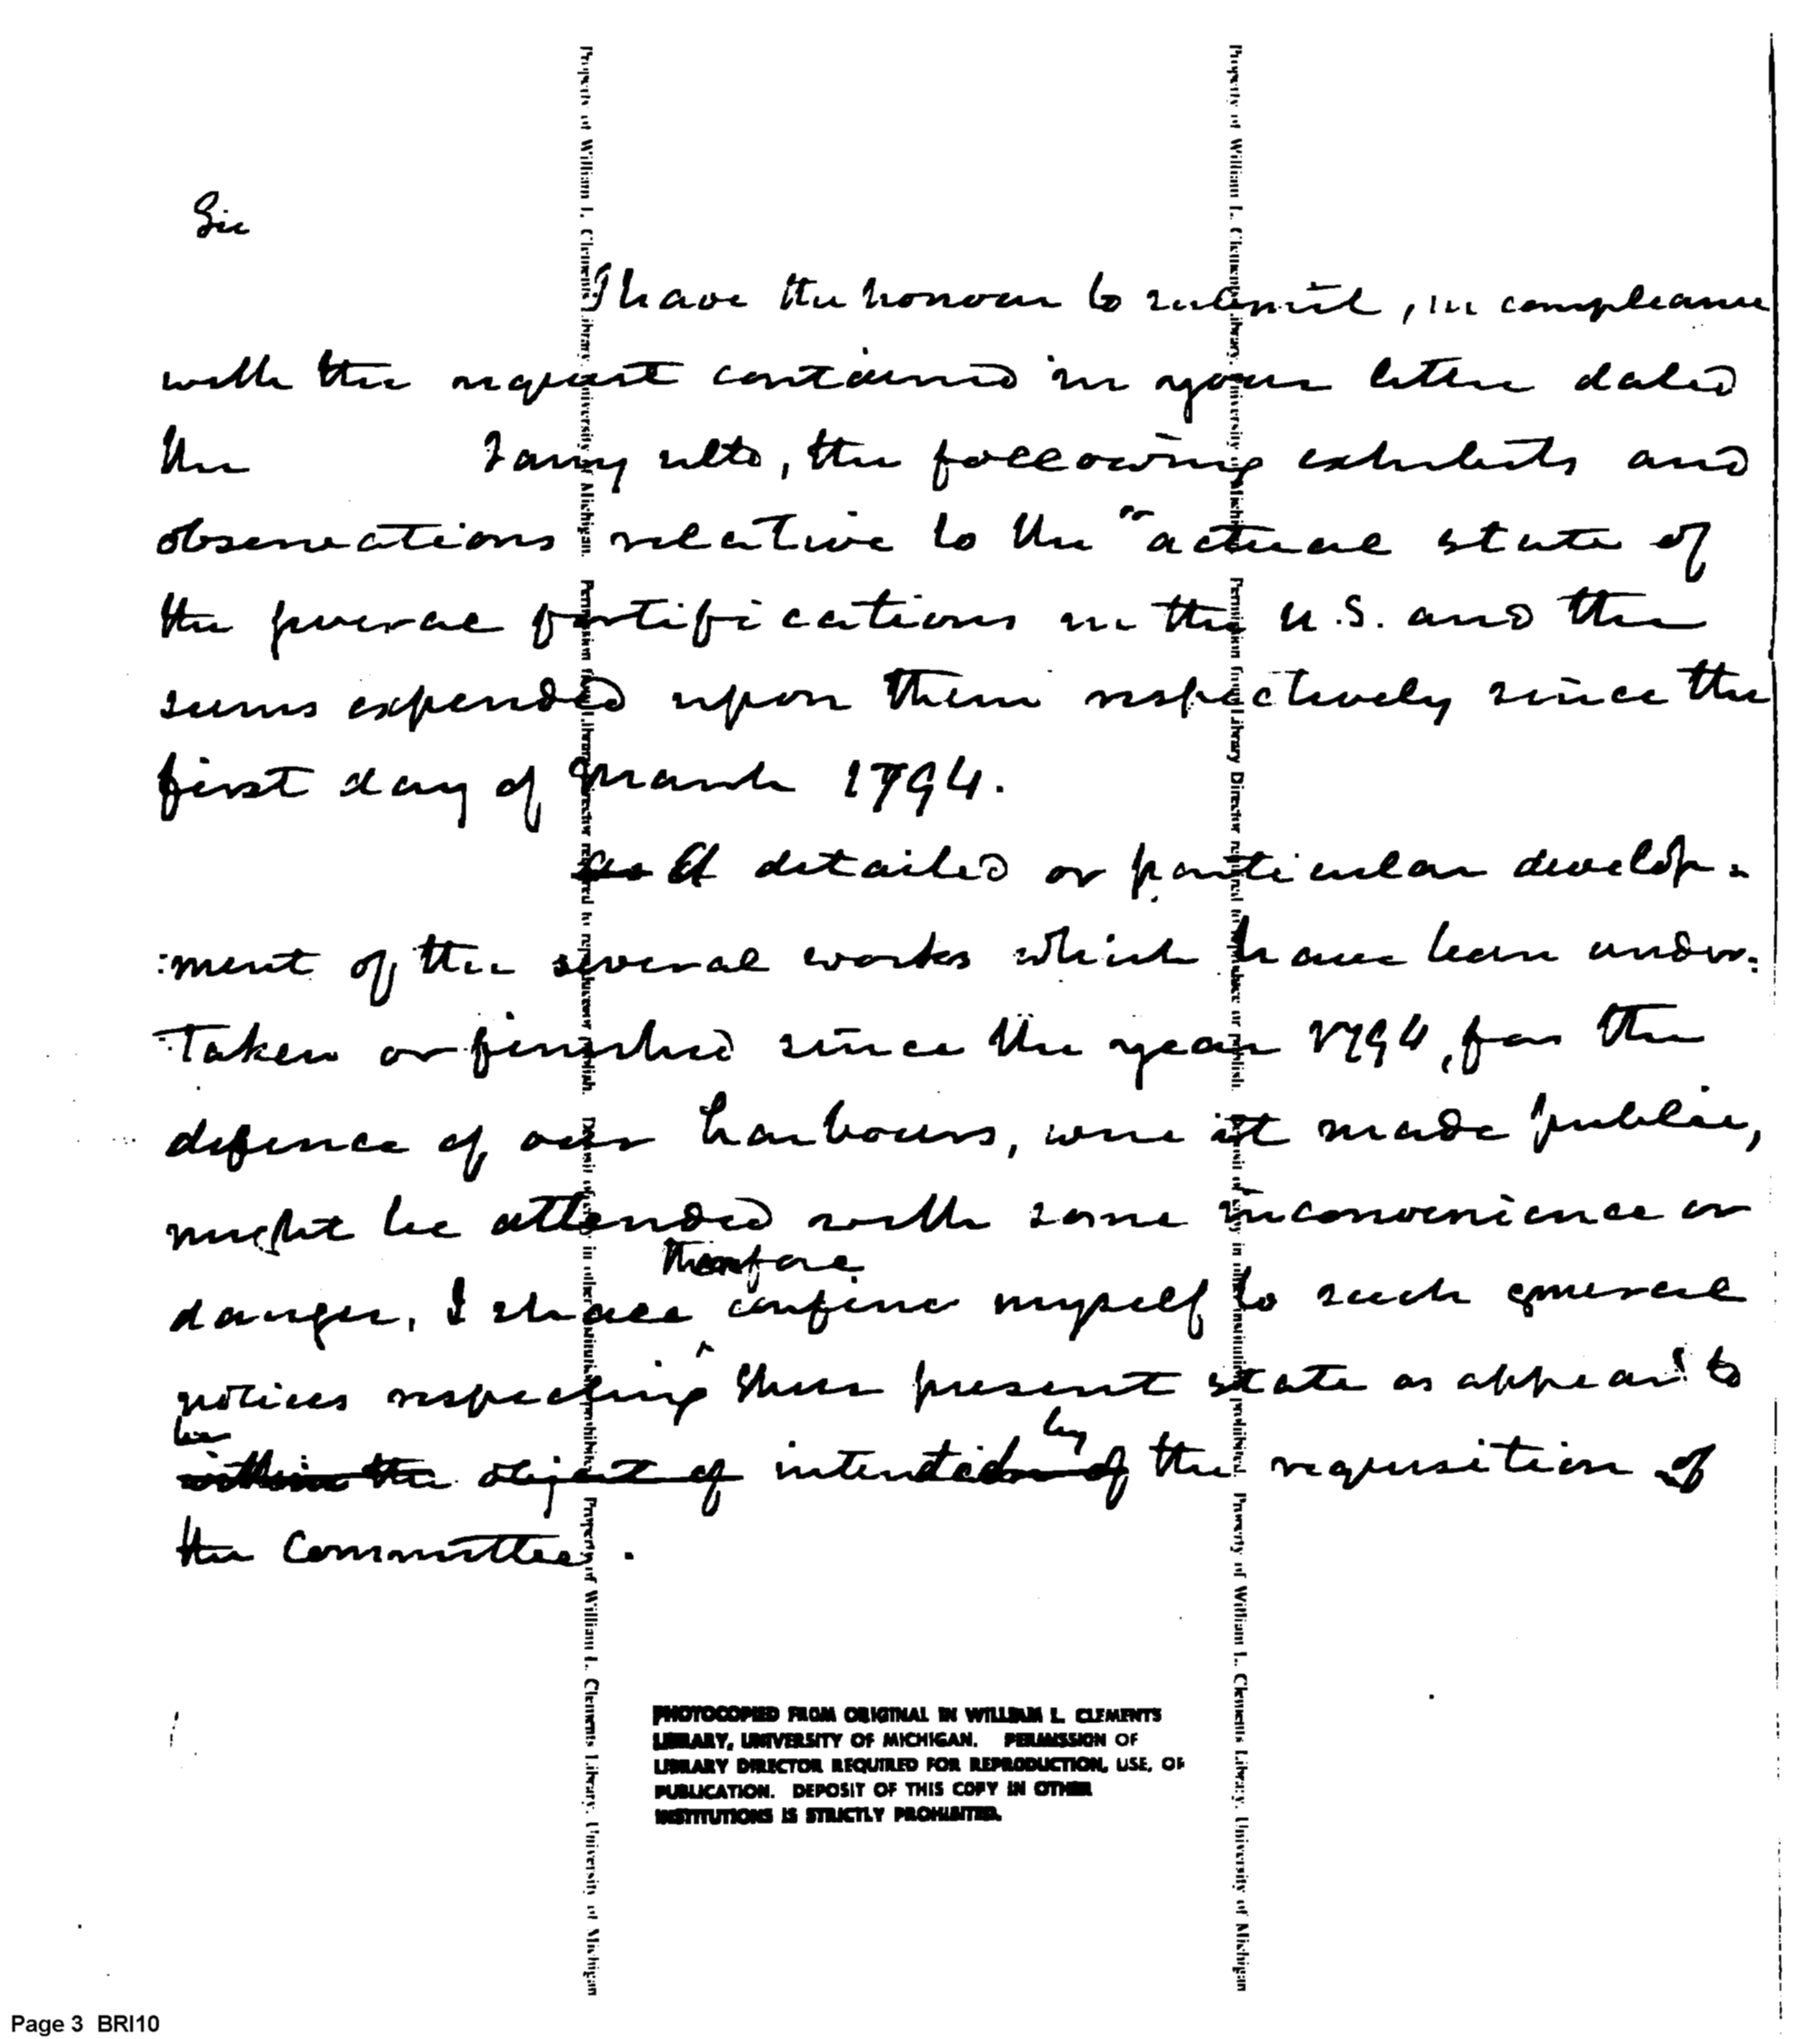 Sir
I have the honour to submit, in compliance
with the request contained in your letter dated
the Jany ulto, the following exhibits and
observations relative to the "actual state of
the several fortifications in the U.S. and the
sums expended upon them respectively since the
first day of March 1794.
as A detailed or particular develop=
:ment of the several works which have been under:
:taken or finished since the year 1794, for the
defence of our harbours, were it made public,
might be attended with some inconvenience or
therefore
danger. I shall confine myself to such general
notices respecting their present state as appear to
be
within the object of intended of by the requisition of
the Committee.
PHOTOCOPIED FROM ORIGINAL IN WILLIAM L. CLEMENTS
LIBRARY, UNIVERSITY OF MICHIGAN. PERMISSION OF
LIBRARY DIRECTOR REQUIRED FOR REPRODUCTION, USE, OR
PUBLICATION. DEPOSIT OF THIS COPY IN OTHER
INSTITUTIONS IS STRICTLY PROHIBITED.
Property of William L. Clements Library, University of Michigan. Permission from Library Director required to reproduce or publish. Deposit of copy in other institutions prohibited. Property of William L. Clements Library, University of Michigan
Property of William L. Clements Library, University of Michigan. Permission from Library Director required to reproduce or publish. Deposit of copy in other institutions prohibited. Property of William L. Clements Library, University of Michigan
Page 3 BRI10